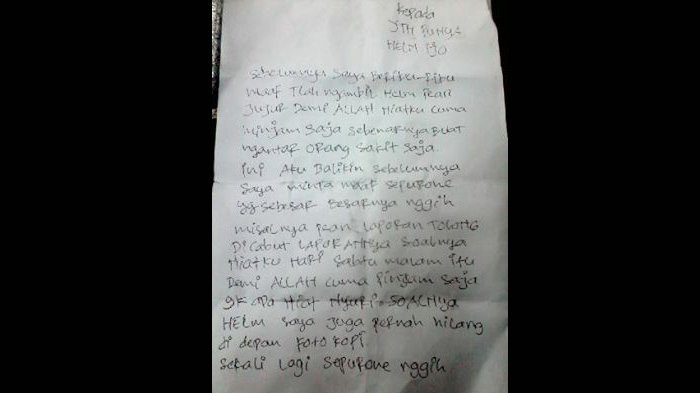 Kepada
YTH PUNYA
HELM IJO
sebelumnya saya beribu-ribu
maaf Tlah ngambil Helm pean
Jujur Demi ALLAH Niatku cuma
minjam saja sebenarnya BUAT
ngantar ORANG Sakit Saja
ini AKU BALIKIN sebelumnya
saya minta maaf sepurone
yg sebesar Besarnya nggih
misalnya pean LAPORAN TOLONG
DiCabut LAPORANnya Soalnya
Niatku HARI Sabtu malam itu
Demi ALLAH cuma Pinjam Saja
gk ada Niat Nyuri. SOALNya
HELM saya juga pernah hilang
di depan FOTO KOPI
Sekali Lagi Sepurone nggih